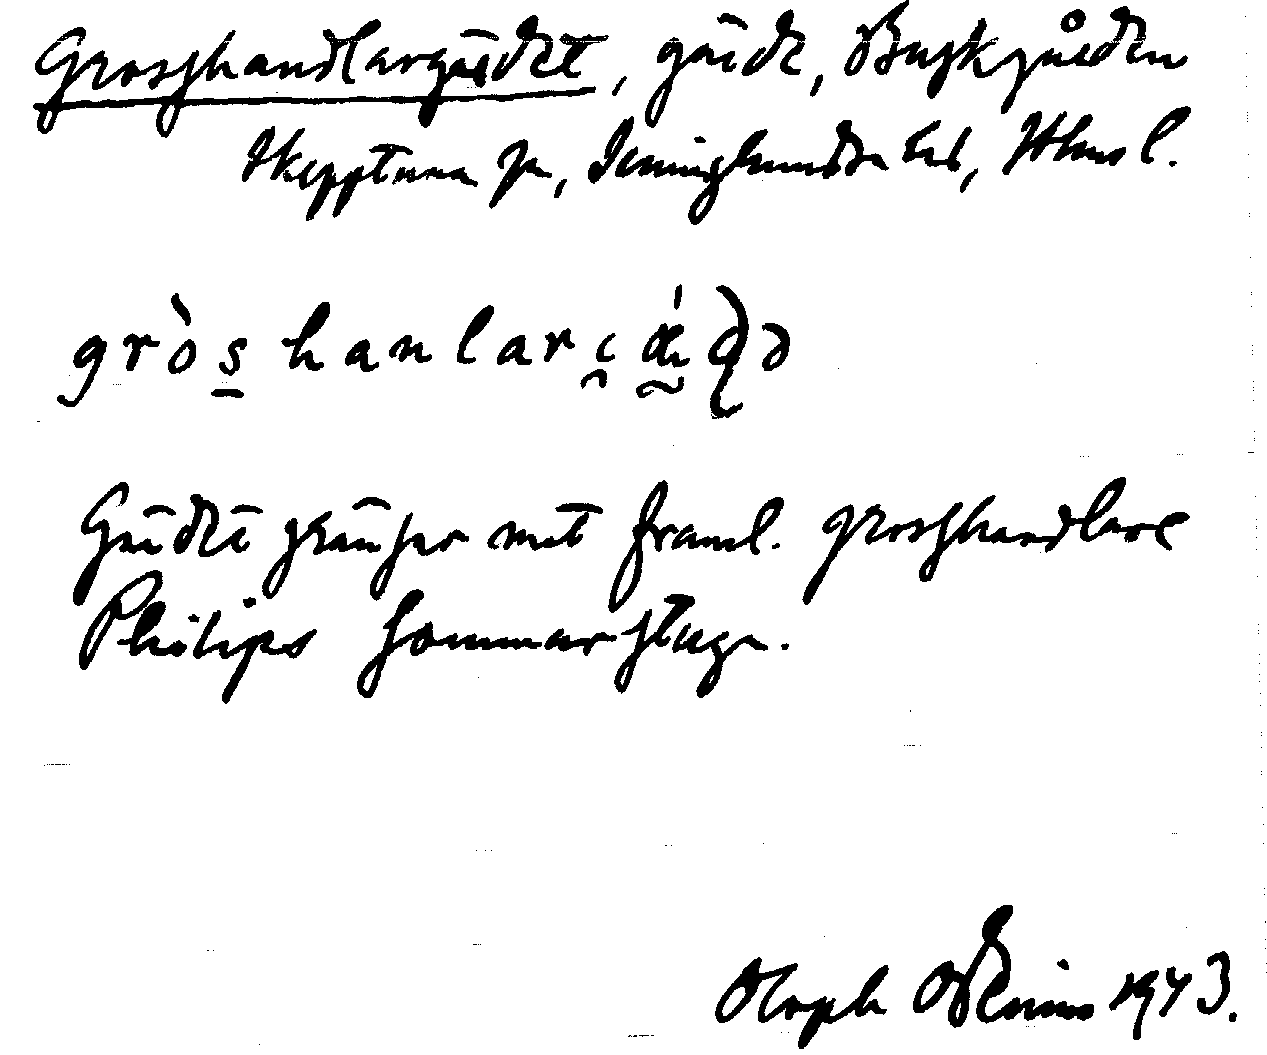 Grosshandlargärdet, gärde, Buskgården
Skepptuna sn, Seminghundra hd, Sthms l.
gròshanlarɕæ̀ḍə
Gärdet gränsar mot framl. grosshandlare
Philips Sommarstuga.
Oloph Odenius 1943.